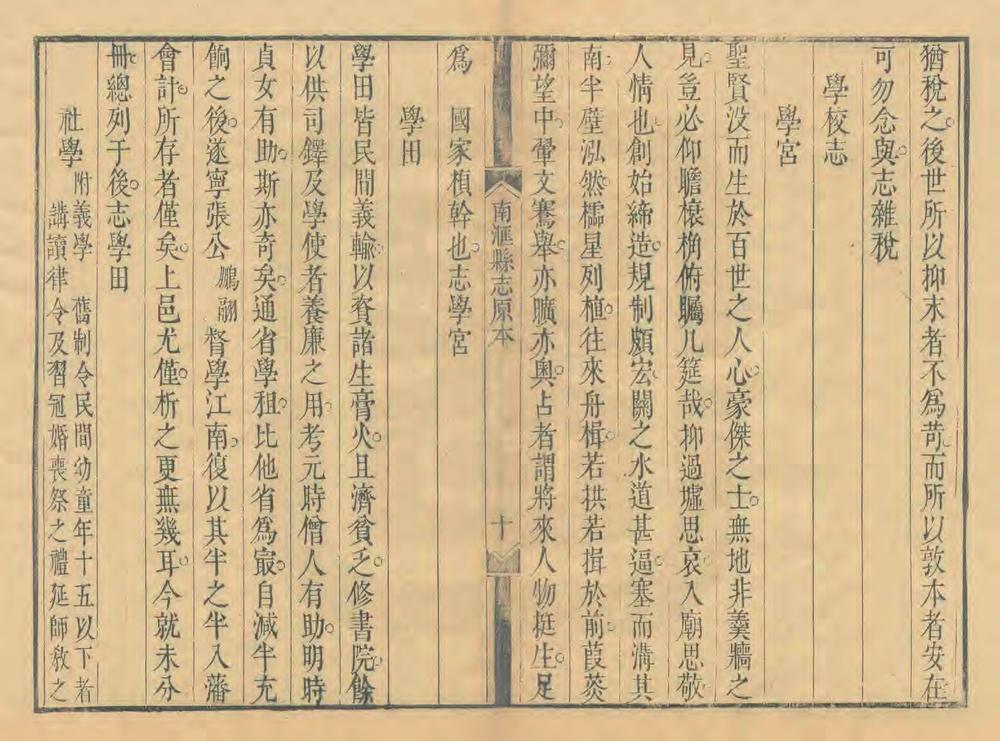 猶稅之後世所以抑末者不為苛而所以敦本者安在
可勿念與志雜稅
學校志
學宮
聖賢沒而生於百世之人心豪傑之士無地非羹牆之
見豈必仰瞻榱桷俯矚几筵哉抑過墟思哀入廟思敬
人情也創始締造規制頗宏闢之水道甚逼塞而溝其
南半壁泓然櫺星列植往來舟楫若拱若揖於前葭葵
彌望中翬文騫舉亦曠亦奧占者謂將來人物挺生足
為 國家楨幹也志學宮
南滙縣志原本
十
學田
學田皆民間義輸以資諸生膏火且濟貧乏修書院餘
以供司鐸及學使者養廉之用考元時僧人有助明時
貞女有助斯亦奇矣通省學租比他省為冣自減半充
餉之後遂寧張公鵬翮督學江南復以其半之半入藩
會計所存者僅矣上邑尤僅析之更無幾耳今就未分
冊總列于後志學田
社學附義學 舊制令民間幼童年十五以下者
講讀律令及習冠婚喪祭之禮延師教之